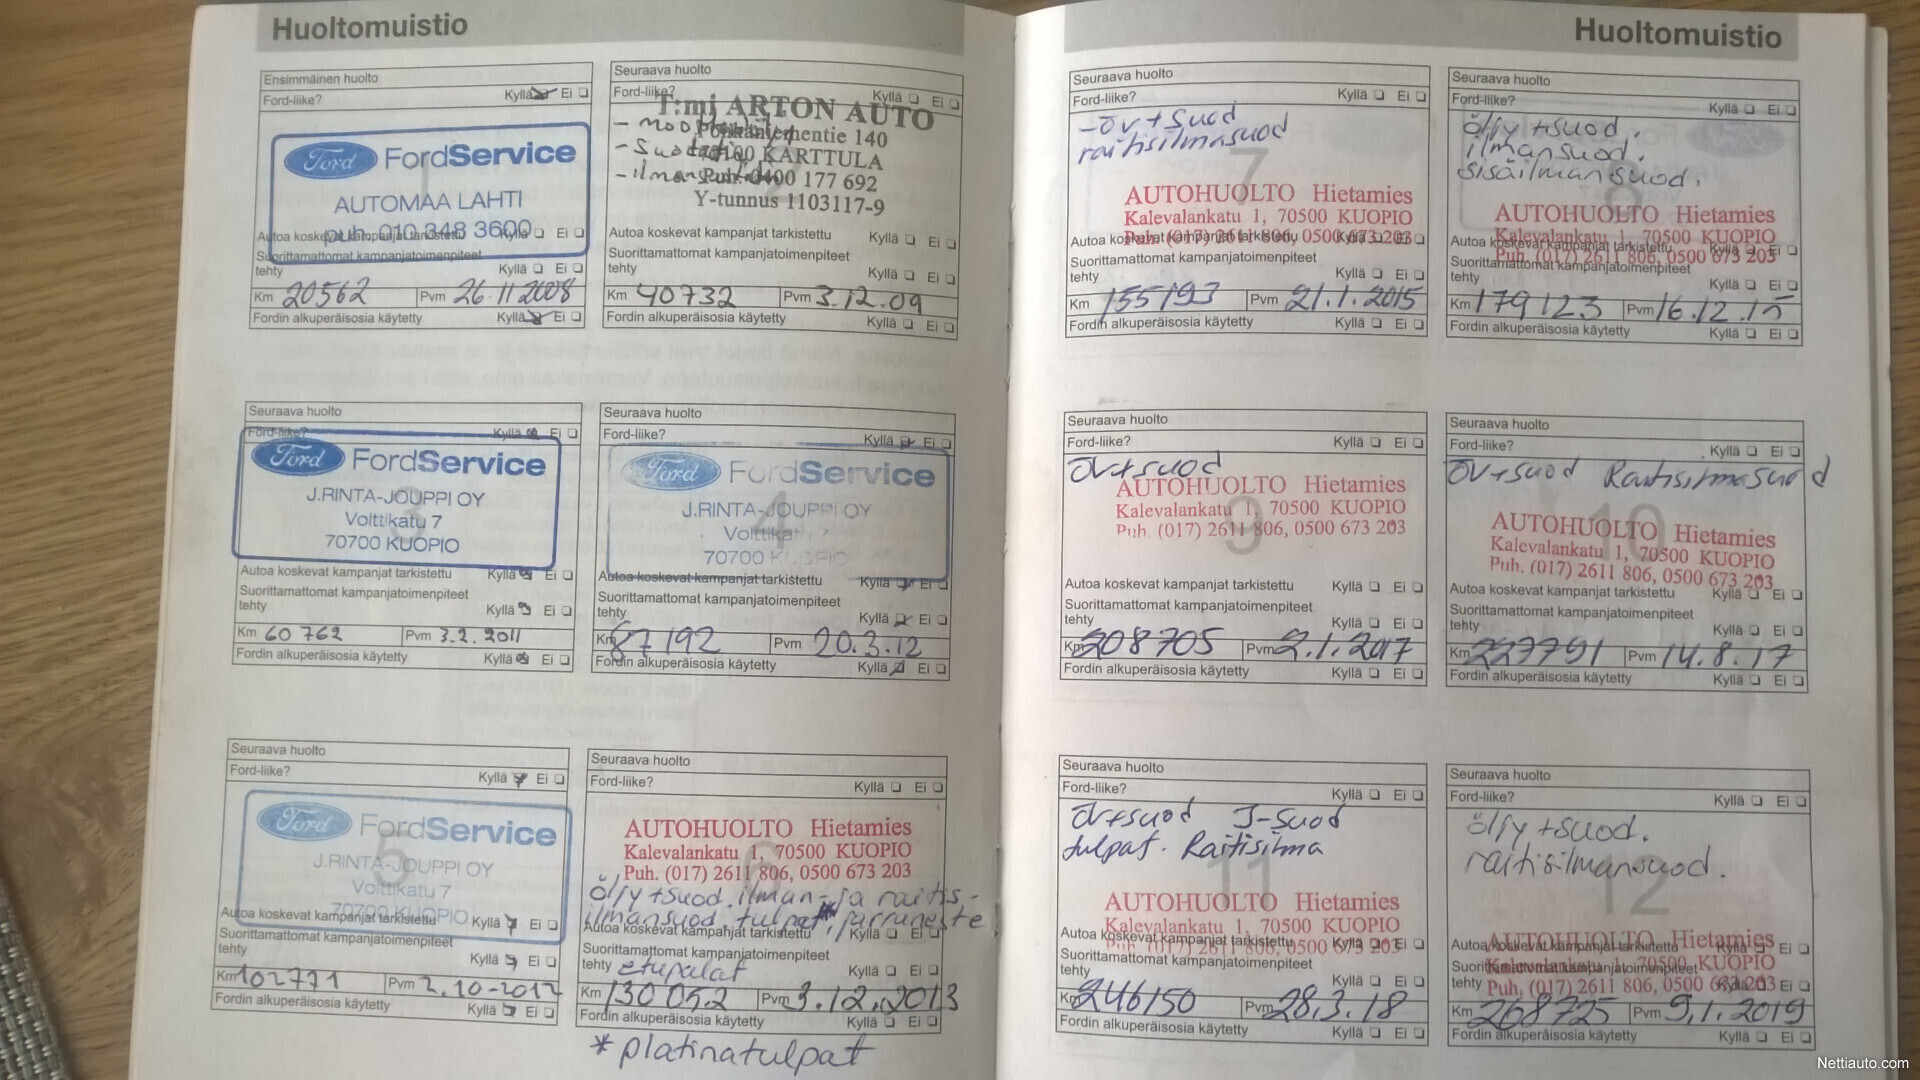 Huoltomuistio
Ensimmäinen huolto
Ford-liike?
Kyllä Ei
Ford FordService
AUTOMAA LAHTI
puh. 010 348 3600
Autoa koskevat kampanjat tarkistettu Kyllä Ei
Suorittamattomat kampanjatoimenpiteet
tehty Kyllä Ei
Km 20562 Pvm 26.11 2008
Fordin alkuperäisosia käytetty Kyllä Ei
Seuraava huolto
Ford-liike? Kyllä Ei
T:mi ARTON AUTO
140
KARTTULA
Puh. 0400 177 692
Y-tunnus 1103117-9
Autoa koskevat kampanjat tarkistettu Kyllä Ei
Suorittamattomat kampanjatoimenpiteet
tehty Kyllä Ei
Km 40732 Pvm 3.12.09
Fordin alkuperäisosia käytetty Kyllä Ei
Seuraava huolto
Ford-liike? Kyllä Ei
3
Ford FordService
J.RINTA-JOUPPI OY
Volttikatu 7
70700 KUOPIO
Autoa koskevat kampanjat tarkistettu Kyllä Ei
Suorittamattomat kampanjatoimenpiteet
tehty Kyllä Ei
Km 60 762 Pvm 3.2.2011
Fordin alkuperäisosia käytetty Kyllä Ei
Seuraava huolto
Ford-liike? Kyllä Ei
4
Ford FordService
J.RINTA-JOUPPI OY
70700 KUOPIO
Autoa koskevat kampanjat tarkistettu Kyllä Ei
Suorittamattomat kampanjatoimenpiteet
tehty Kyllä Ei
Km 87192 Pvm 20.3.12
Fordin alkuperäisosia käytetty Kyllä Ei
Seuraava huolto
Ford-liike? Kyllä Ei
5
Ford FordService
J.RINTA-JOUPPI OY
Volttikatu 7
70700 KUOPIO
Autoa koskevat kampanjat tarkistettu Kyllä Ei
Suorittamattomat kampanjatoimenpiteet
tehty Kyllä Ei
Km 102771 Pvm 2.10-2012
Fordin alkuperäisosia käytetty Kyllä Ei
Seuraava huolto
Ford-liike? Kyllä Ei
6
AUTOHUOLTO Hietamies
Kalevalankatu 1, 70500 KUOPIO
Puh. (017) 2611 806, 0500 673 203
öljy+suod. ilman- ja raitis-
ilmansuod. tulpat*, jarruneste
Autoa koskevat kampanjat tarkistettu Kyllä Ei
Suorittamattomat kampanjatoimenpiteet
tehty etupalat Kyllä Ei
Km 130 052 Pvm 3.12.2013
Fordin alkuperäisosia käytetty Kyllä Ei
*platinatulpat
Huoltomuistio
Seuraava huolto
Ford-liike? Kyllä Ei
7
-öv+suod
raitisilmasuod
AUTOHUOLTO Hietamies
Kalevalankatu 1, 70500 KUOPIO
Puh. (017) 2611 806, 0500 673 203
Autoa koskevat kampanjat tarkistettu Kyllä Ei
Suorittamattomat kampanjatoimenpiteet
tehty Kyllä Ei
Km 155193 Pvm 21.1.2015
Fordin alkuperäisosia käytetty Kyllä Ei
Seuraava huolto
Ford-liike? Kyllä Ei
8
öljy+suod.
ilmansuod.
sisäilmansuod.
AUTOHUOLTO Hietamies
Kalevalankatu 1, 70500 KUOPIO
Puh. (017) 2611 806, 0500 673 203
Autoa koskevat kampanjat tarkistettu Kyllä Ei
Suorittamattomat kampanjatoimenpiteet
tehty Kyllä Ei
Km 179123 Pvm 16.12.15
Fordin alkuperäisosia käytetty Kyllä Ei
Seuraava huolto
Ford-liike? Kyllä Ei
9
öv+suod
AUTOHUOLTO Hietamies
Kalevalankatu 1, 70500 KUOPIO
Puh. (017) 2611 806, 0500 673 203
Autoa koskevat kampanjat tarkistettu Kyllä Ei
Suorittamattomat kampanjatoimenpiteet
tehty Kyllä Ei
Km 208705 Pvm 2.1.2017
Fordin alkuperäisosia käytetty Kyllä Ei
Seuraava huolto
Ford-liike? Kyllä Ei
10
öv+suod Raitisilmasuod
AUTOHUOLTO Hietamies
Kalevalankatu 1, 70500 KUOPIO
Puh. (017) 2611 806, 0500 673 203
Autoa koskevat kampanjat tarkistettu Kyllä Ei
Suorittamattomat kampanjatoimenpiteet
tehty Kyllä Ei
Km 227791 Pvm 14.8.17
Fordin alkuperäisosia käytetty Kyllä Ei
Seuraava huolto
Ford-liike? Kyllä Ei
11
öv+suod I-suod
tulpat. Raitisilma
AUTOHUOLTO Hietamies
Kalevalankatu 1, 70500 KUOPIO
Puh. (017) 2611 806, 0500 673 203
Autoa koskevat kampanjat tarkistettu Kyllä Ei
Suorittamattomat kampanjatoimenpiteet
tehty Kyllä Ei
Km 246150 Pvm 28.3.18
Fordin alkuperäisosia käytetty Kyllä Ei
Seuraava huolto
Ford-liike? Kyllä Ei
12
öljy+suod.
raitisilmansuod.
AUTOHUOLTO Hietamies
Kalevalankatu 1, 70500 KUOPIO
Puh. (017) 2611 806, 0500 673 203
Autoa koskevat kampanjat tarkistettu Kyllä Ei
Suorittamattomat kampanjatoimenpiteet
tehty Kyllä Ei
Km 268725 Pvm 9.1.2019
Fordin alkuperäisosia käytetty Kyllä Ei
Nettiauto.com